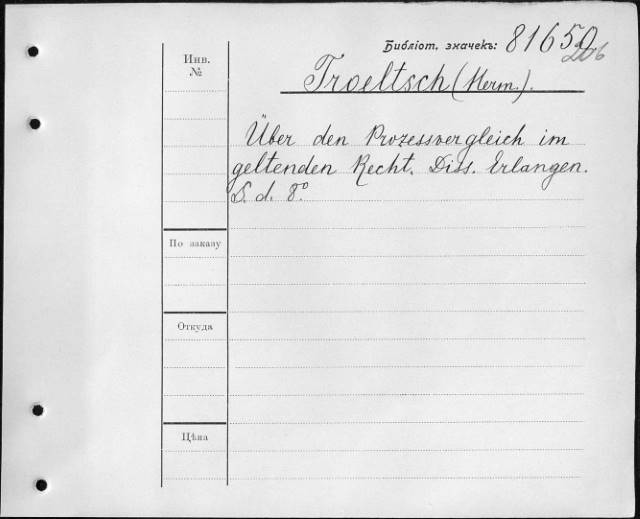 Библіот. значекъ: 81650
206
Инв.
№
Troeltsch (Herm.).
Über den Prozessvergleich im
geltenden Recht. Diss. Erlangen.
S. d. 8°.
По заказу
Откуда
Цѣна